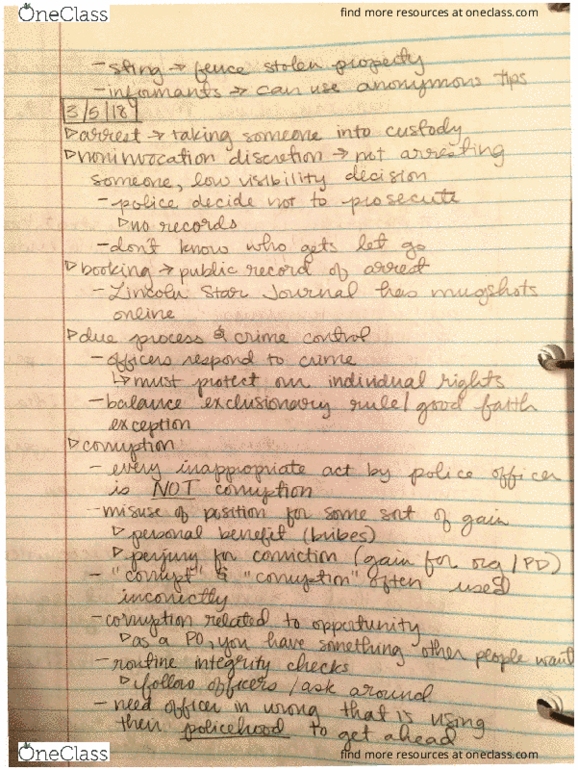 OneClass
find more resources at oneclass.com
- sting → fence stolen property
- informants → can use anonymous tips
3/5/18
▷arrest → taking someone into custody
▷noninvocation discretion → not arresting
someone, low visibility decision
- police decide not to prosecute
▷no records
- don't know who gets let go
▷booking → public record of arrest
- Lincoln Star Journal has mugshots
online
▷due process & crime control
- officers respond to crime
↳ must protect our individual rights
- balance exclusionary rule/good faith
exception
▷corruption
- every inappropriate act by police officer
is NOT corruption
- misuse of position for some sort of gain
▷personal benefit (bribes)
▷perjury for conviction (gain for org/PD)
- "corrupt" & "corruption" often used
incorrectly
- corruption related to opportunity
▷as a PO, you have something other people want
- routine integrity checks
▷follow officers/ask around
- need officer in wrong that is using
their policehood to get ahead
OneClass
find more resources at oneclass.com